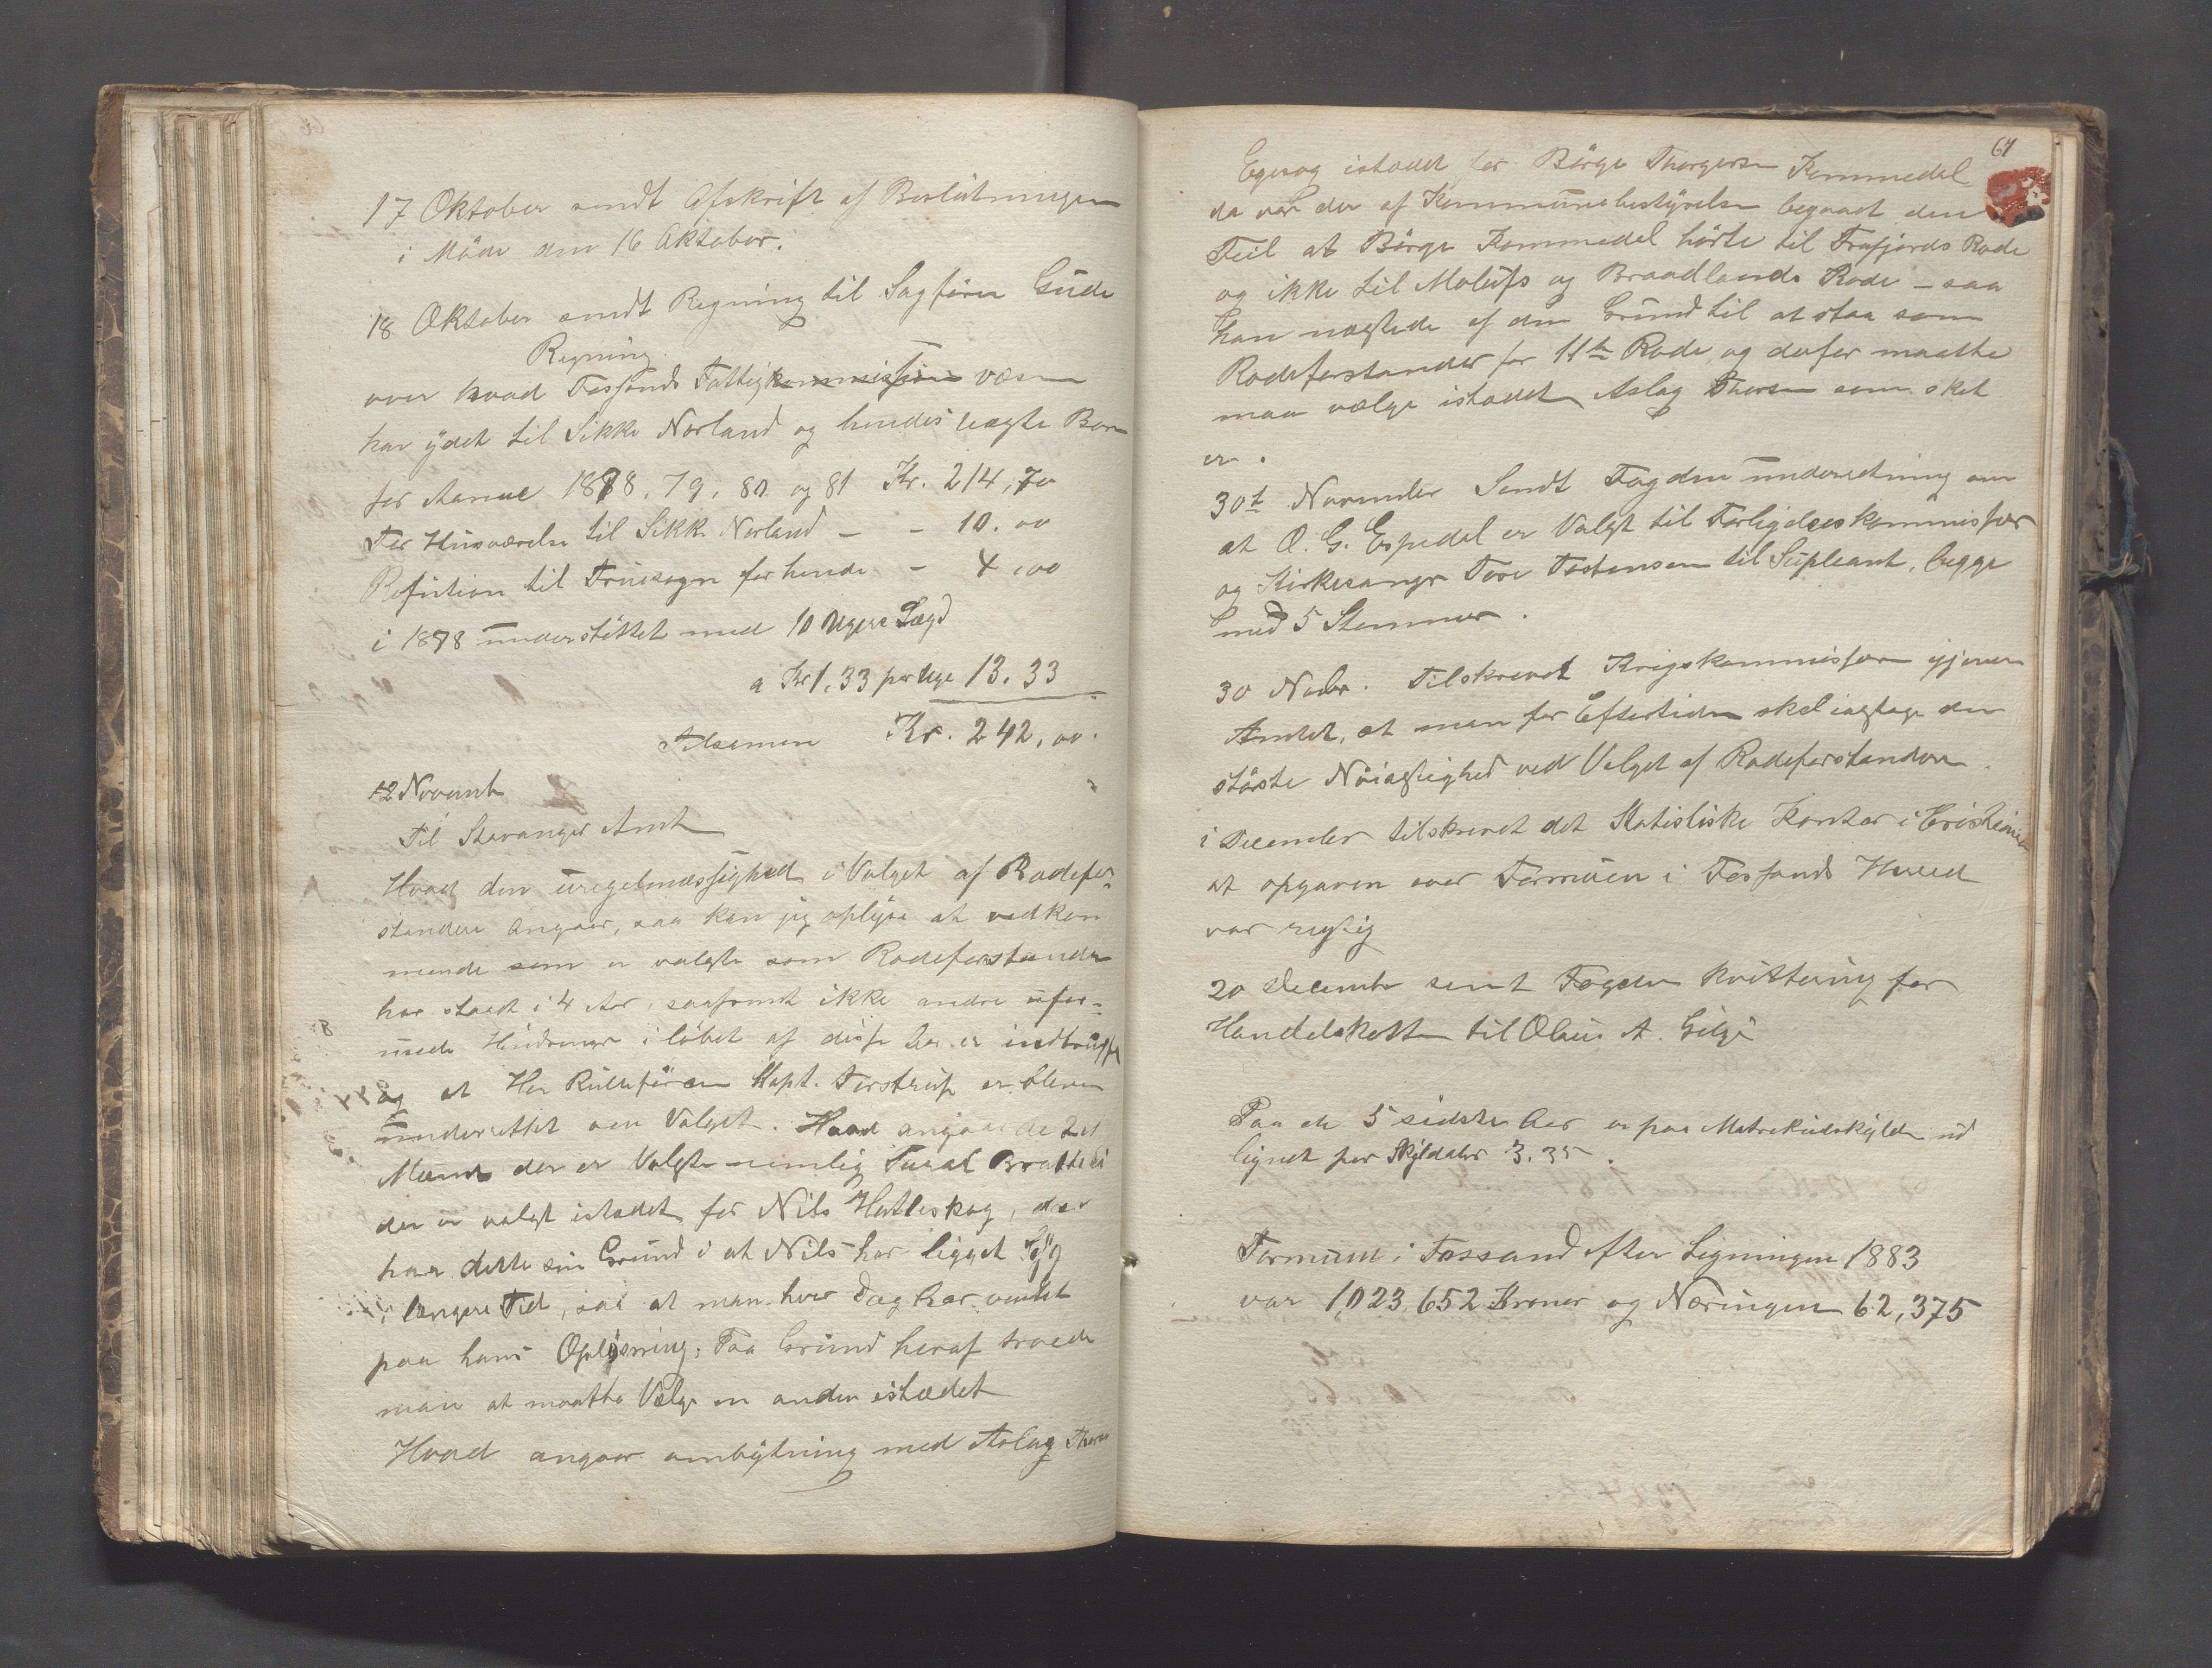 17 Oktober sendt Afskrift af Beslutningen
i Möde den 16 Oktober.
18 Oktober sendt Regning til Sagförer Gude
Regning
over hvad Fossands Fattigkommission væsen
har ydet til Sikke Norland og hendes uægte Barn
for Aarene 1878. 79. 80 og 81 Kr. 214,70
For Husværelse til Sikke Norland – - 10.00
Refution til Fruesogn for hende - 4,00
i 1878 understöttet med 10 Ugers Lægd
a Kr 1.33 per Uge 13.33
Tilsamen Kr. 242,00.
12 Novemb
Til Stavanger Amt
Hvad den uregelmæssighed i Valget af Rodefor-
standere angaar, saa kan jeg oplyse at vedkom
mende som er valgte som Rodeforstander
har staaet i 4 Aar, saafremt ikke andre ufor-
mede Hindringer i löbet af disse Aar er indtruffet
og at Her Rulleförer Kapt. Torstrup er bleven
underrettet om Valget. Hvad angaar de to
Mænd der er Valgte nemlig Tural Brattelid
der er valgt istedet for Nils Hatleskog, der
har dette sin Grund i at Nils har ligget syg
i længere Tid, saa at man hver Dag har ventet
paa hans Oplösning; Paa Grund heraf troede
man at maatte Vælge en anden istædet
Hvad angaar ombytning med Aslag Thorsen
64
Egeseg istædet for Börge Thorgersen Kommedal
da var der af Kommunebestyrelsen begaaet den
Feil at Börge Kommedal hörte til Frafjords Rode
og ikke til Molaugs og Braadlands Rode – saa
han nægtede af den Grund til at staa som
Rodeforstander for 11te Rode og derfor maatte
man vælge istædet Aslag Thorsen som sket
er.
30te November Sendt Fogden underretning om
at O. G. Espedal er Valgt til Forligelseskommissær
og Kirkesanger Tore Tostensen til Supleant, begge
med 5 Stemmer.
30 Novbr. Tilskrevet Krigskommissæren gjennem
Amtet, at man for Eftertiden skal iagttage den
störste Nöiagtighed ved Valget af Rodeforstandere.
i December tilskrevet det Statistiske Kontor i Cristiania
at opgaven over Formuen i Fossands Herred
var rigtig
20 December sent Fogden Kvittering for
Handelskatten til Olaus A. Gilje
Paa de 5 sidste Aar er paa Matrikulskylden ud
lignet per Skylddaler 3.35.
Formuen i Fossand efter Ligningen 1883
var 1,023,652 Kroner og Næringen 62,375